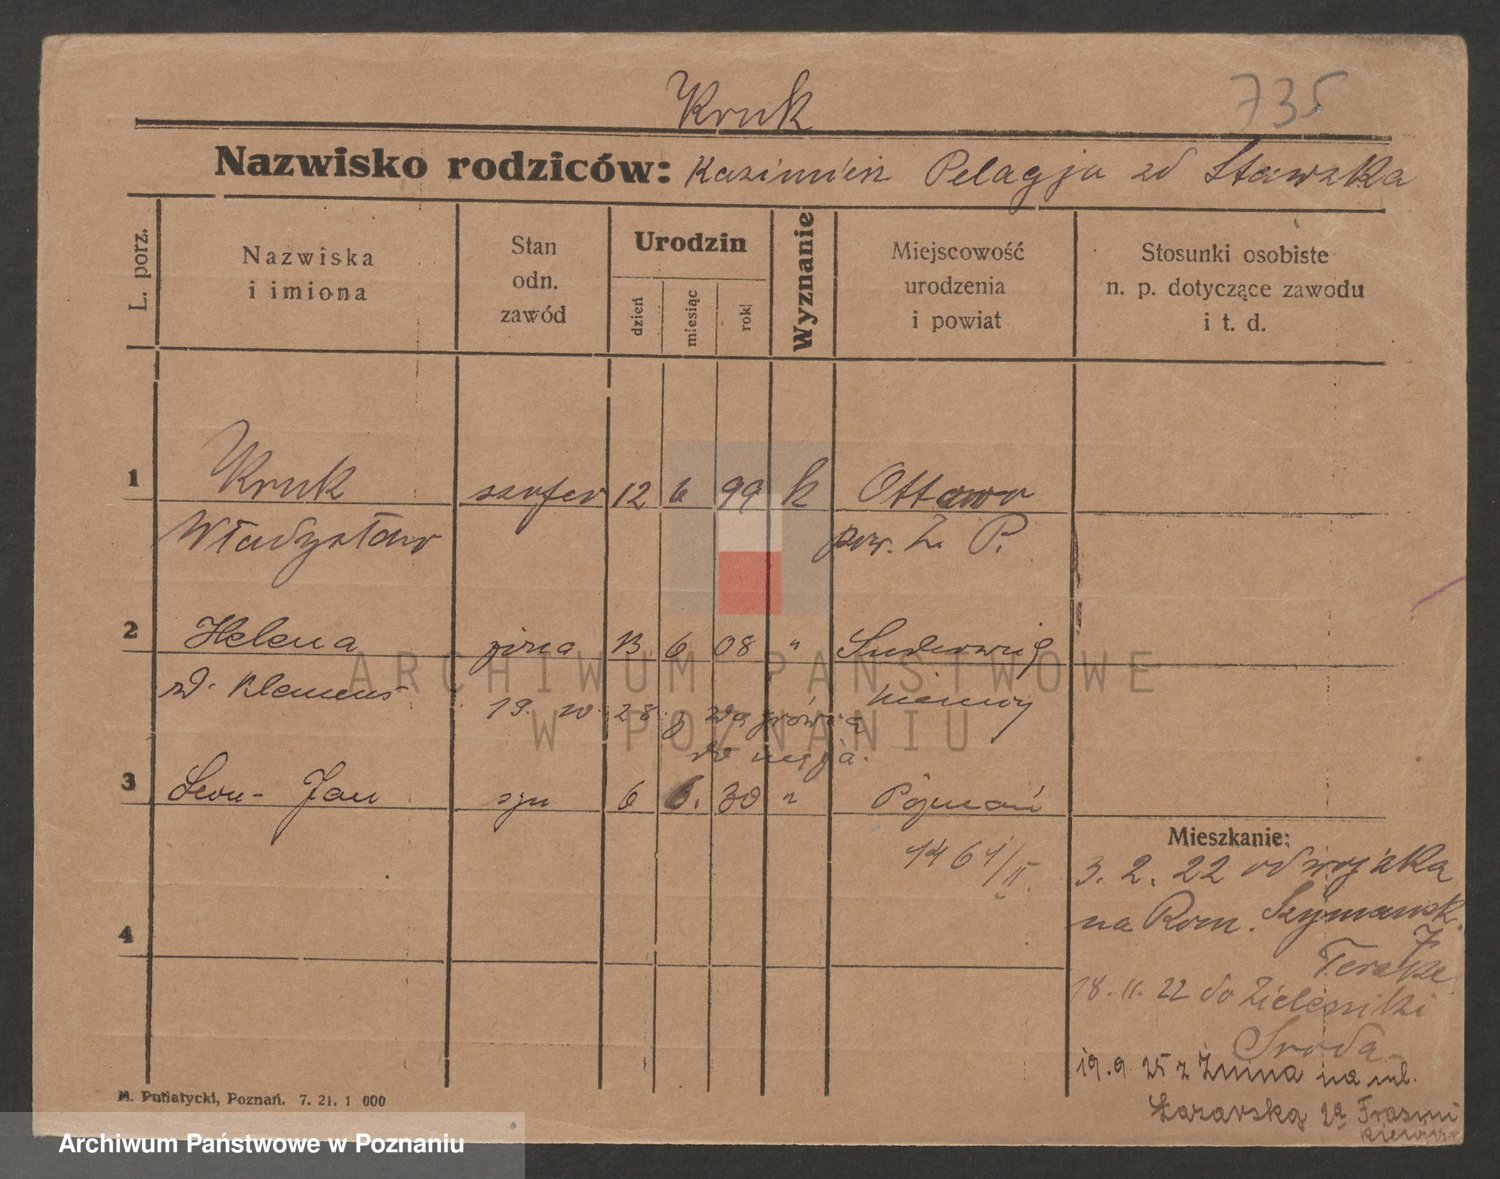 Kruk
735
Nazwisko rodziców: Kazimierz Pelagja zd Stawska
L. porz.
Nazwiska
i imiona
Stan
odn.
zawód
Urodzin
dzień
miesiąc
rok
Wyznanie
Miejscowość
urodzenia
i powiat
Stosunki osobiste
n. p. dotyczące zawodu
i t. d.
1 Kruk szofer 12 6 99 k Ottowo
Władysław pow. Z. P.
2 Helena żona 13 6 08 "
zd. Klemens Niemcy
19. 10. 28. z Wągrówca
do męża.
3 Leon - Jan syn 6 6. 30 " Poznań
1461/II.
4
Mieszkanie:
3. 2. 22 od wojska
na Rom. Szymansk.
7
18. 11. 22 do Zielniki
Środa
19. 9 25 z Żnina na ul.
Łazarską 2a
M. Putiatycki, Poznań. 7. 21. 1 000
ARCHIWUM PAŃSTWOWE
W POZNANIU
Archiwum Państwowe w Poznaniu